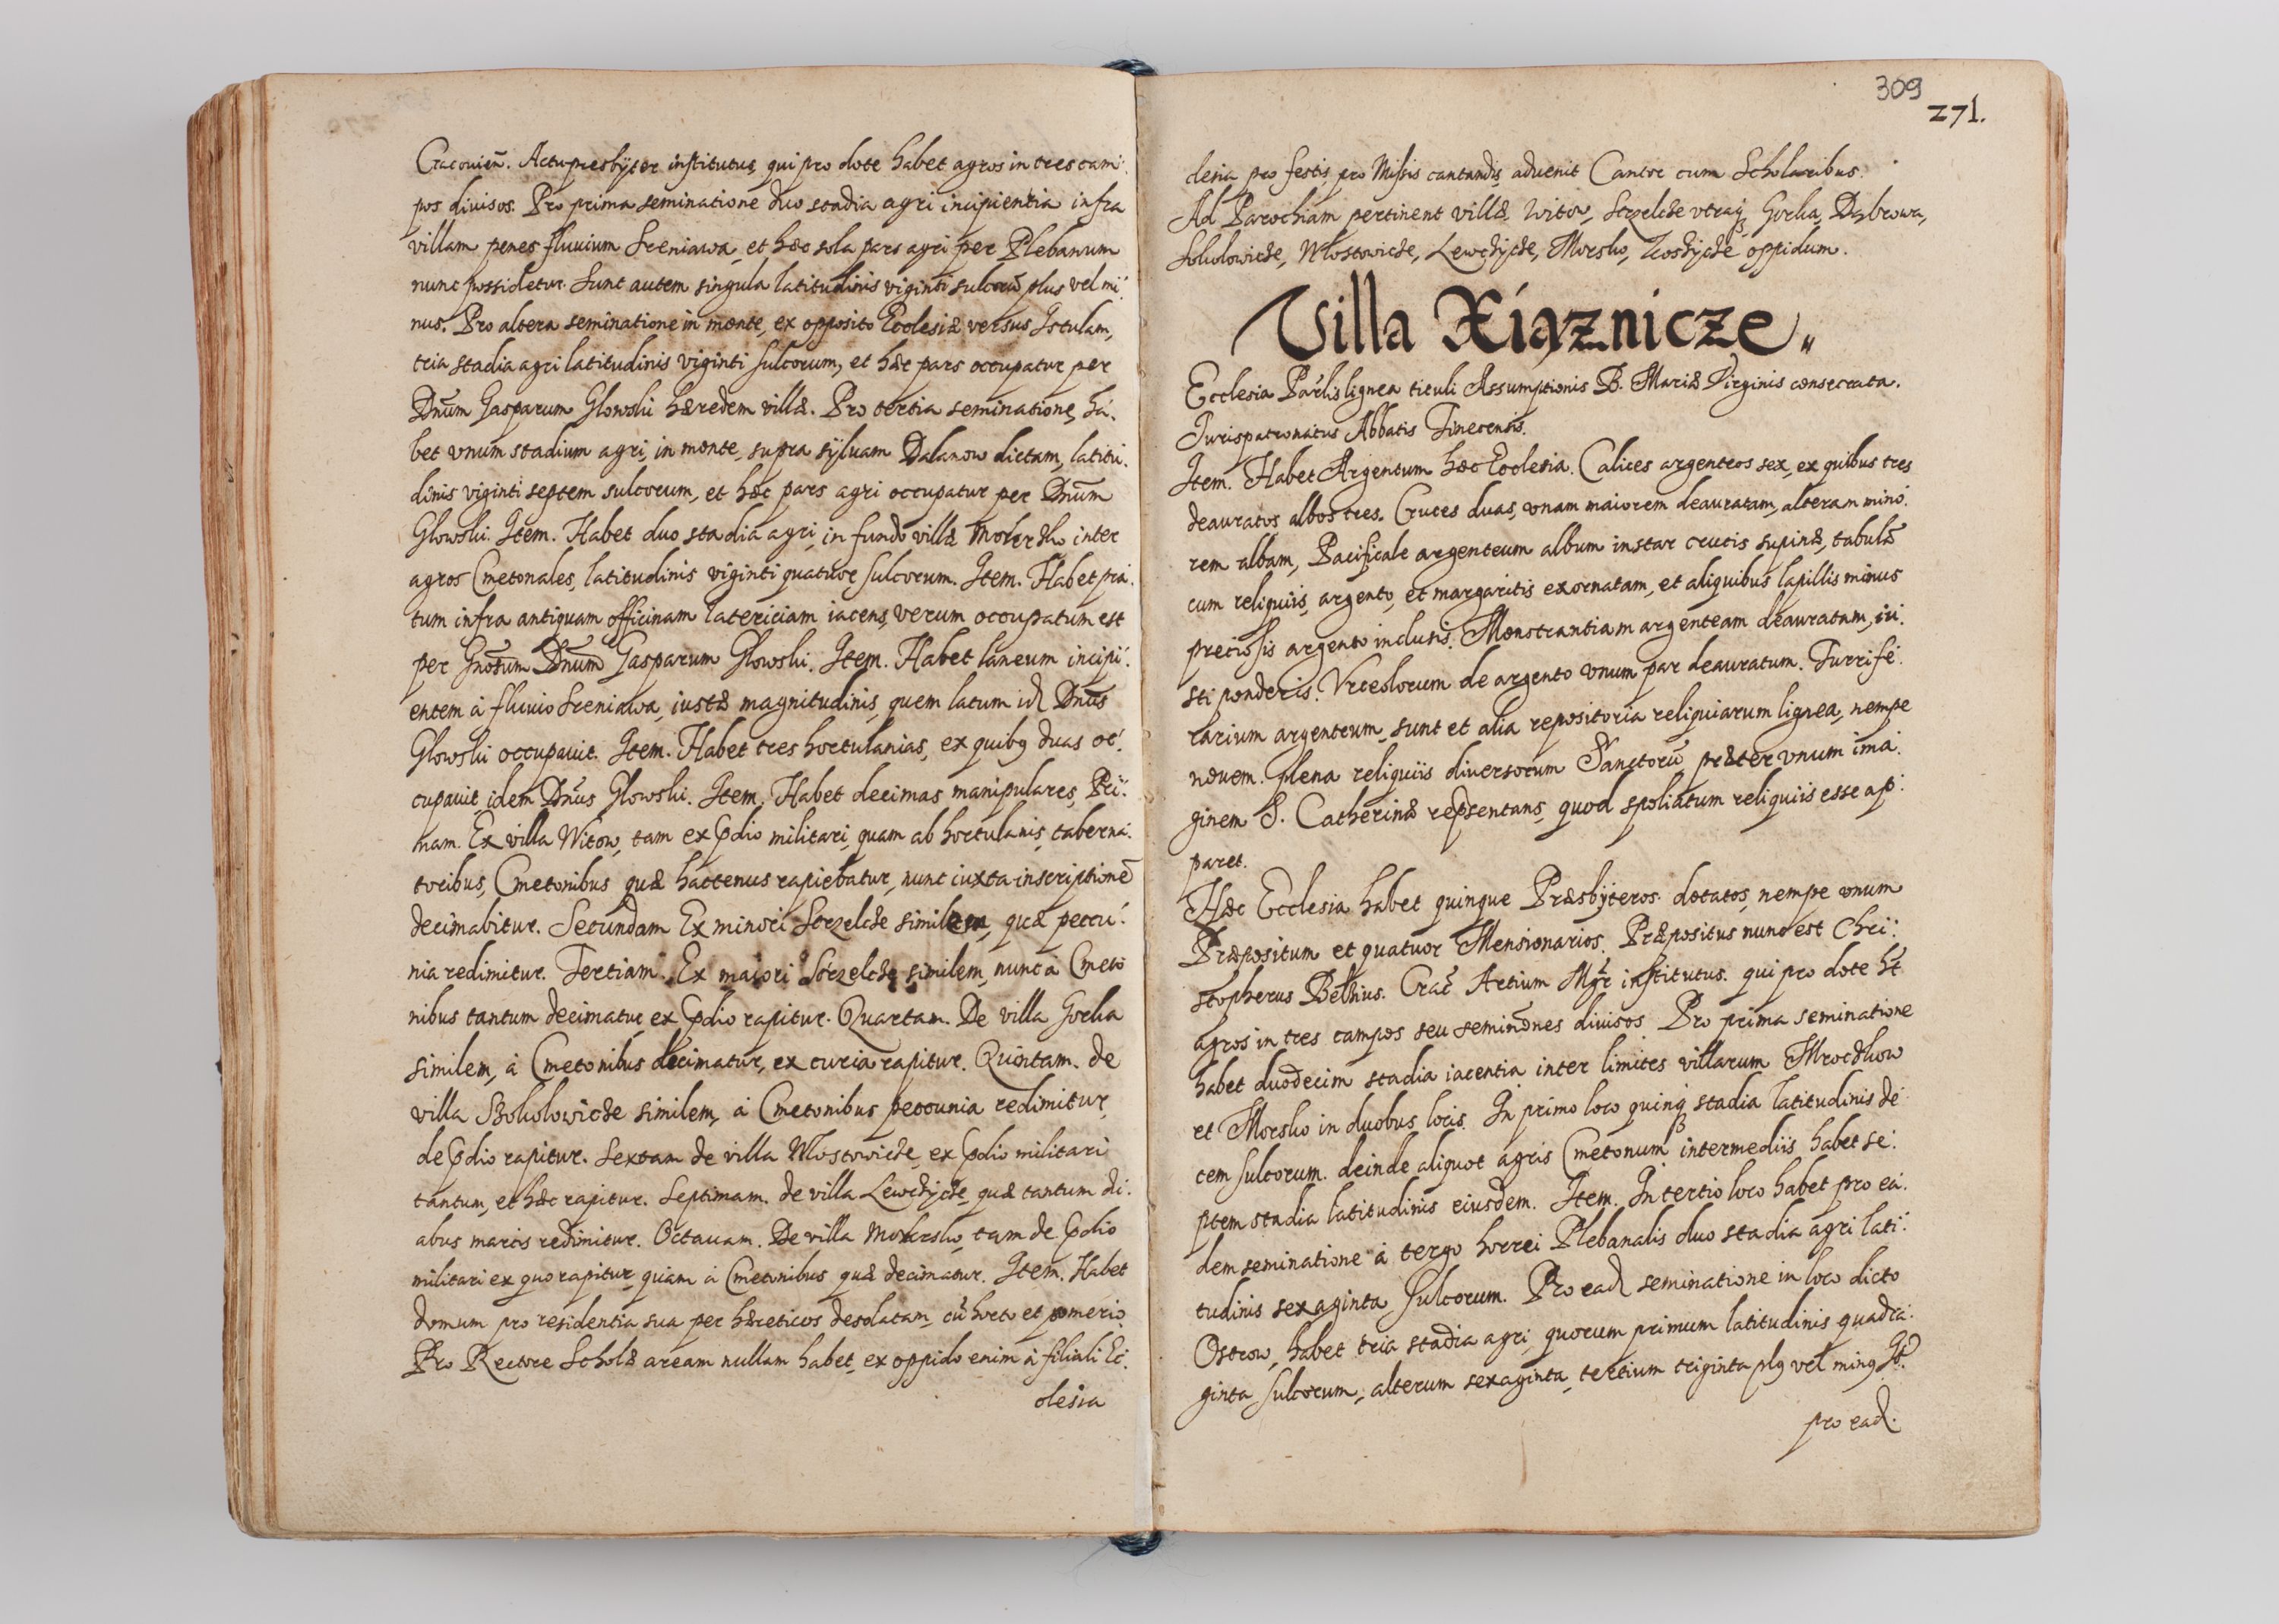 Cracovien̄. Actu presbyter institutus, qui pro dote habet agros in tres cam:
pos divisos. Pro prima seminatione duo stadia agri incipientia infra
villam penes fluuium Sreniawa, et hæc sola pars agri per Plebanum
nunc possidetur. Sunt autem singula latitudinis viginti sulcorū plus vel mi:
nus. Pro altera seminatione in monte, ex opposito Ecclesiæ versus Istulam,
tria stadia agri latitudinis viginti sulcorum, et hæc pars occupatur per
Dnūm Gasparum Glowski hæredem villæ. Pro tertia seminatione, ha:
bet vnum stadium agri, in monte, supra syluam Dalanow dictam, latitu:
dinis viginti septem sulcorum, et hæc pars agri occupatur per Dnūm
Glowski. Item. Habet duo stadia agri, in fundo villæ inter
agros Cmetonales, latitudinis viginti quatuor sulcorum. Item. Habet pra:
tum infra antiquam officinam latericiam iacens, verum occupatum est
per Gnōsum Dnūm Gasparum Glowski. Item. Habet laneum incipi:
entem à fluuio Sreniawa, iustæ magnitudinis, quem latum id Dnūs
Glowski occupauit. Item. Habet tres hortulanias, ex quibꝫ duas oc:
cupauit, idem Dnūs Glowski. Item. Habet decimas manipulares, Pri:
mam. Ex villa Witow, tam ex Pdio militari, quam ab hortulanis, taberna:
toribus, Cmetonibus quæ hactenus rapiebatur, nunc iuxta inscriptionē
decimabitur. Secundam Ex minori Strzelcze similem, quæ pecu:
nia redimitur. Tertiam. Ex maiori Strzelcze similem, nunc à Cmeto
nibus tantum decimatur ex Pdio rapitur. Quartam. De villa Gorka
similem, à Cmetonibus decimatur, ex curia rapitur. Quintam. de
villa Sokolowicze similem, à Cmetonibus pecunia redimitur,
de Pdio rapitur. Sextam de villa Wlostowicze, ex Pdio militari
tantum, et hæc rapitur. Septimam. de villa Lewczycze, quæ tantum du:
abus marcis redimitur. Octauam. De villa Mokrsko, tam de Pdio
militari ex quo rapitur, quam à Cmetonibus quæ decimatur. Item. Habet
domum pro residentia sua per hæreticos desolatam, cū horto et pomerio.
Pro Rectore Scholæ aream nullam habet, ex oppido enim à filiali Ec:
clesia
309
271.
clesia pro festis, pro Missis cantandis, aduenit Cantor cum Scholaribus.
Ad Parochiam pertinent villæ, Witow, Strzelcze vtraqꝫ, Gorka, Dąbrowa,
Sokolowicze, Wlostowicze, Lewczycze, Morsko, Koszycze oppidum.
Villa Xiąznicze„
Ecclesia Parlīs lignea tituli Assumptionis B. Mariæ Virginis consecrata.
Jurispatronatus Abbatis Tinecensis.
Item. Habet Argentum hæc Ecclesia. Calices argenteos sex, ex quibus tres
deauratos albos tres. Cruces duas, vnam maiorem deauratam, alteram mino:
rem albam, Pacificale argenteum album instar crucis supinæ, tabulā
cum reliquiis, argento, et margaritis exornatam, et aliquibus lapillis minus
preciosis argento inclusis. Monstrantiam argenteam deauratam, iu:
sti ponderis. Vrceolorum de argento vnum par deauratum. Turrife:
rarium argenteum, sunt et alia repositoria reliquiarum lignea, nempe
nouem. plena reliquiis diuersorum Sanctorū præter vnum ima:
ginem S. Catherinæ repsentans, quod spoliatum reliquiis esse ap:
paret.
Hæc Ecclesia habet quinque Præsbyteros dotatos, nempe vnum
Præpositum et quatuor Mensionarios. Præpositus nunc est Chri:
stopherus Crac̄ Artium Mgr̄ institutus. qui pro dote ht̄
agros in tres campos seu seminōnes diuisos. Pro prima seminatione
habet duodecim stadia iacentia inter limites villarum Mroczkow
et Morsko in duobus locis. In primo loco quinqꝫ stadia latitudinis de:
cem sulcorum. deinde aliquot agris Cmetonum intermediis habet se:
ptem stadia latitudinis eiusdem. Item. In tertio loco habet pro ea:
dem seminatione à tergo horrei Plebanalis duo stadia agri lati:
tudinis sexaginta sulcorum. Pro ead seminatione in loco dicto
Ostrow, habet tria stadia agri, quorum primum latitudinis quadra:
ginta sulcorum, alterum sexaginta, tertium triginta plꝫ vel minꝫ. It.
pro ead.